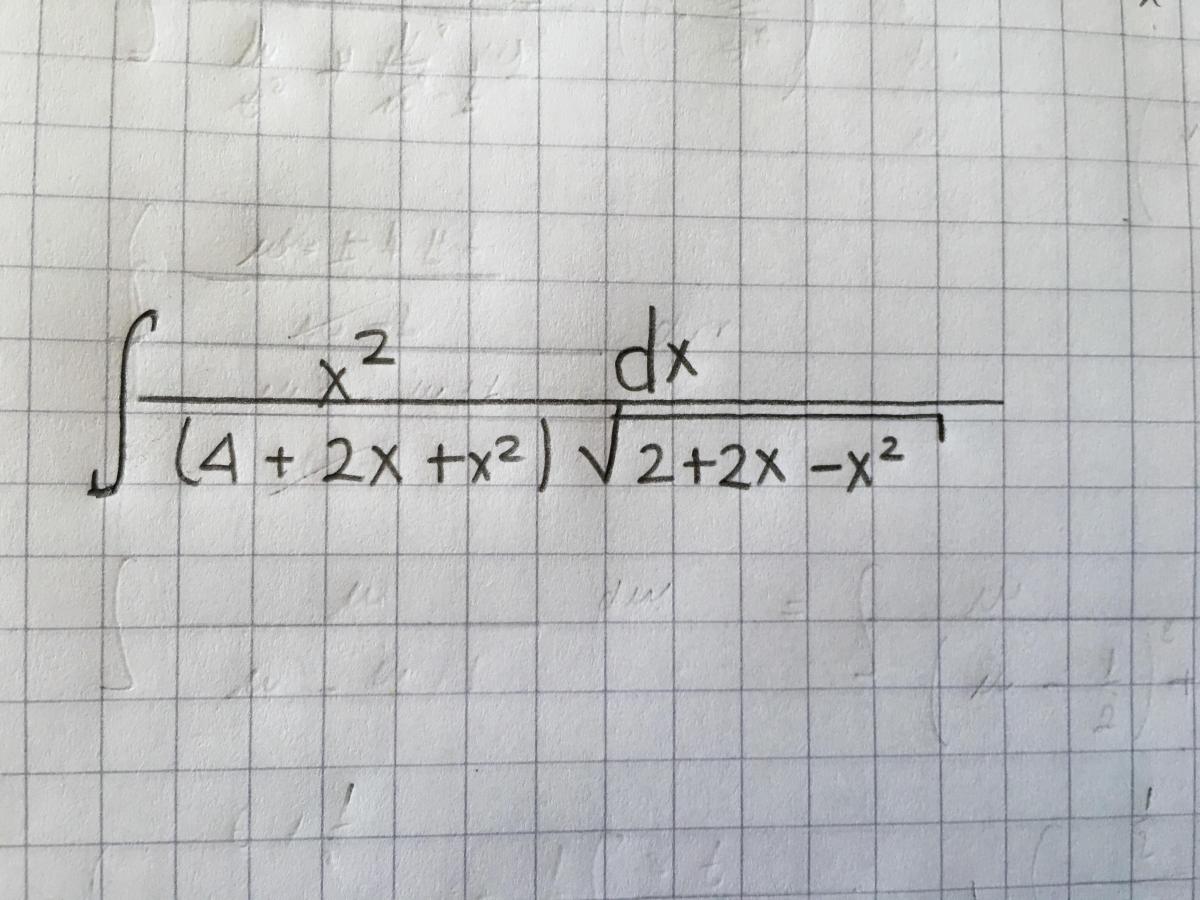 ∫ x² dx / (4 + 2x + x²) √(2+2x -x²)